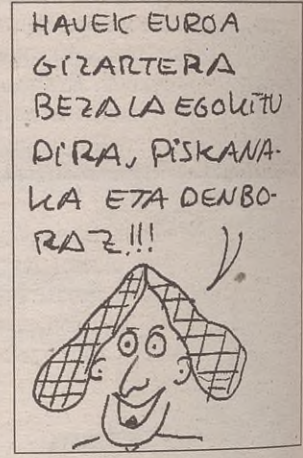 HAUEK EUROA
GIZARTERA
BEZALA EGOKITU
DIRA, PISKANA-
KA ETA DENBO-
RAZ!!!